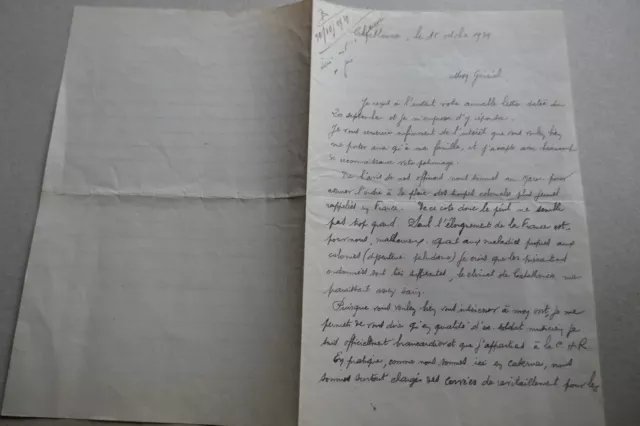 Casablanca, le 18 octobre 1939
Mon Général
Je reçois à l'instant votre nouvelle lettre datée du
20 septembre et je m'empresse d'y répondre.
Je vous remercie infiniment de l'intérêt que vous voulez bien
me porter ainsi qu'à ma famille, et j'accepte avec beaucoup
de reconnaissance votre parrainage.
De l'avis de nos officiers, nous sommes au Maroc pour
assurer l'ordre à la place des troupes coloniales plus
rappelées en France. De ce côté donc le péril ne semble
pas trop grand. Seul l'éloignement de la France est,
pour nous, malheureux. Quant aux maladies propres aux
colonies (dysenterie paludisme) je crois que les
ordonnées sont très suffisantes, le climat de Casablanca me
paraissant assez sain.
Puisque vous voulez bien vous intéresser à mon sort, je me
permets de vous dire qu'en qualité d'ex-soldat musicien, je
suis officiellement brancardier et que j'appartiens à la C.H.R.
En pratique, comme nous sommes ici en casernes, nous
sommes surtout chargés des corvées de ravitaillement pour les